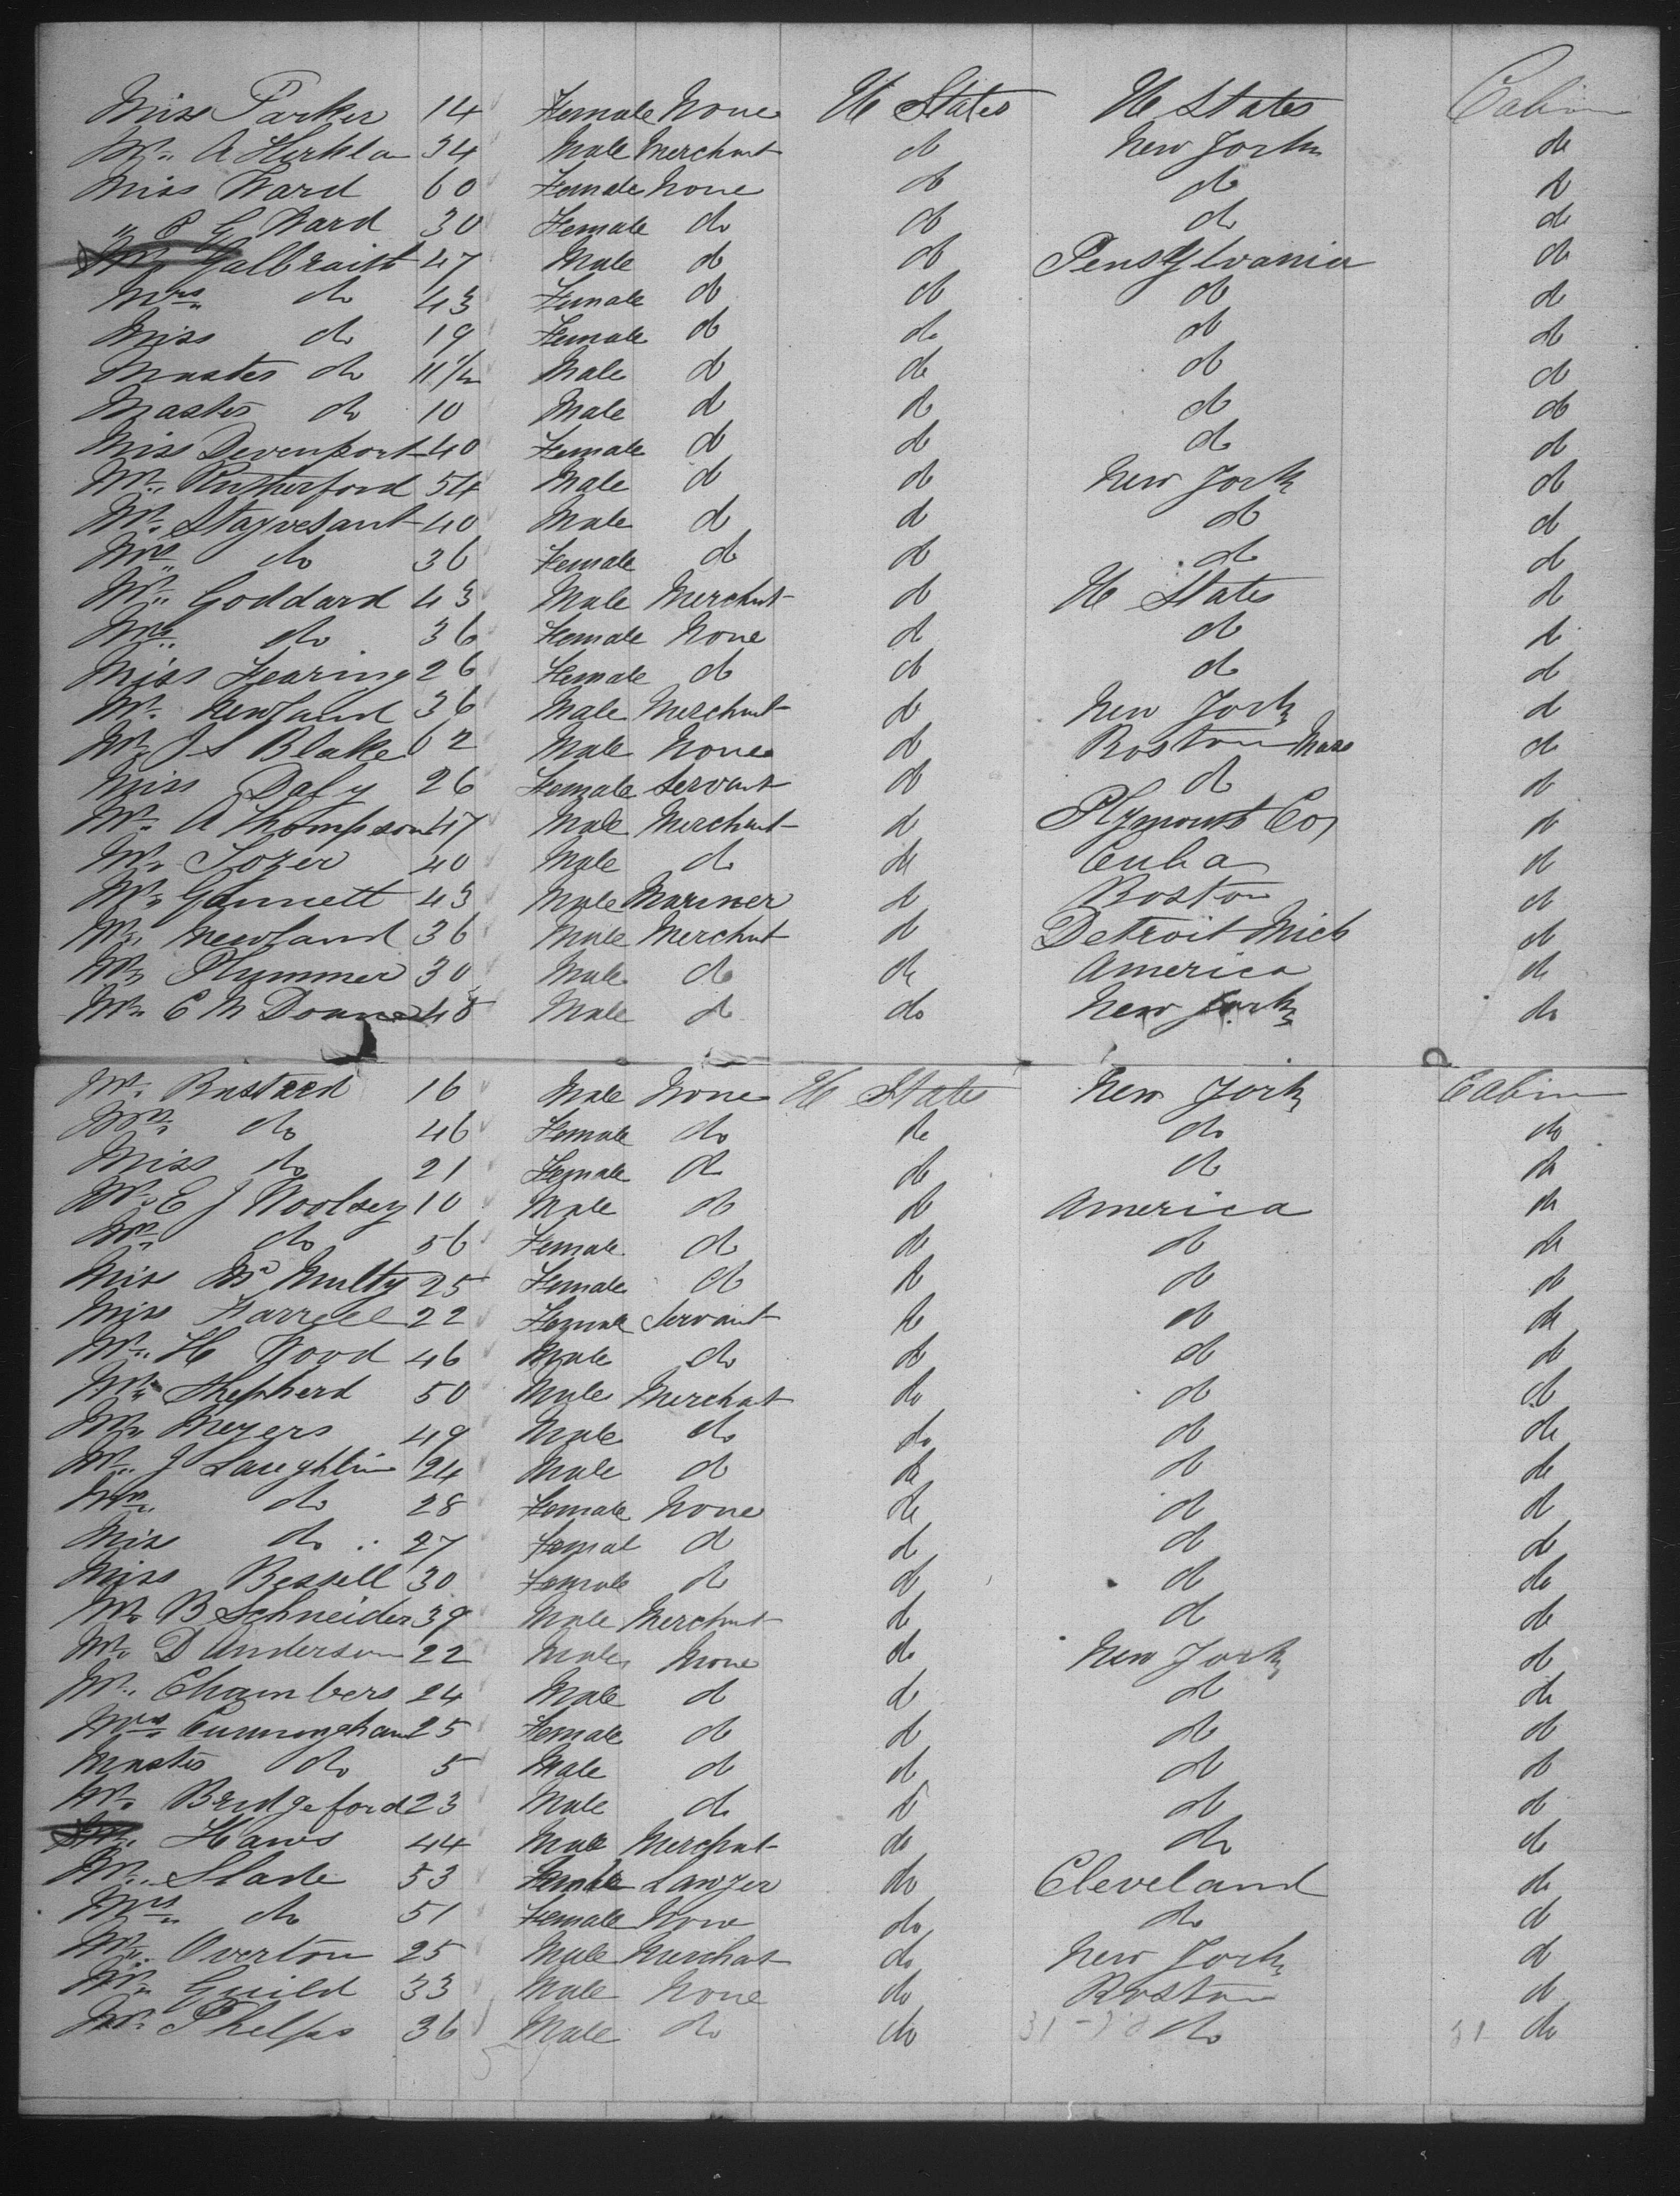 Miss Parker 14 Female None U States U States Cabin
Mr. A Hirkla 34 Male Merchant do New York do
Miss Ward 60 Female None do do do
" P G Ward 30 Female do do do do
Galbraith 47 Male do do Pensylvania do
Mrs do 43 Female do do do do
Miss do 19 Female do do do do
Master do 11 1/2 Male do do do do
Master do 10 Male do do do do
Miss Devenport 40 Female do do do do
Mr. Rutherford 54 Male do do New York do
Mr. Stayvesant 40 Male do do do do
Mrs do 36 Female do do do do
Mr. Goddard 43 Male Merchnt do U States do
Mrs. do 36 Female None do do do
Miss Fearing 26 Female do do do do
Mr. Newland 36 Male Merchnt do New York do
Mr J S Blake 62 Male None do Boston Mass do
Miss Daly 26 Female Servant do do do
Mr. A Thompson 47 Male Merchnt do Plymouth Co do
Mr. Sozer 40 Male do do Cuba do
Mr. Gannett 43 Male Mariner do Boston do
Mr. Newland 36 Male Merchnt do Detroit Mich do
Mr. Plummer 30 Male do do America do
Mr. E M Doane 45 Male do do New York do
Mr. Bustard 16 Male None U States New York Cabin
Mrs do 46 Female do do do do
Miss do 21 Female do do do do
Mr. E J Woolsey 10 Male do do America do
Mrs do 56 Female do do do do
Miss Mc Nulty 25 Female do do do do
Miss Farrell 22 Female Servant do do do
Mr. H Wood 46 Male do do do do
Mr. Shepherd 50 Male Merchant do do do
Mr. Meyers 49 Male do do do do
Mr. J Laughlin 24 Male do do do do
Mrs. do 28 Female None do do do
Miss do 27 Femal do do do do
Miss Bessell 30 Female do do do do
Mr. B Schneider 39 Male Merchnt do do do
Mr. D Anderson 22 Male None do New York do
Mr. Chambers 24 Male do do do do
Mrs Cunningham 25 Female do do do do
Master do 5 Male do do do do
Mr. Bridgeford 23 Male do do do do
Haws 44 Male Merchnt do do do
Mr. Slade 53 Lawyer do Cleveland do
Mrs do 51 Female None do do do
Mr. Overton 25 Male Merchat do New York do
Mr. Guild 33 Male None do Boston do
Mr. Phelps 36 Male do do do do